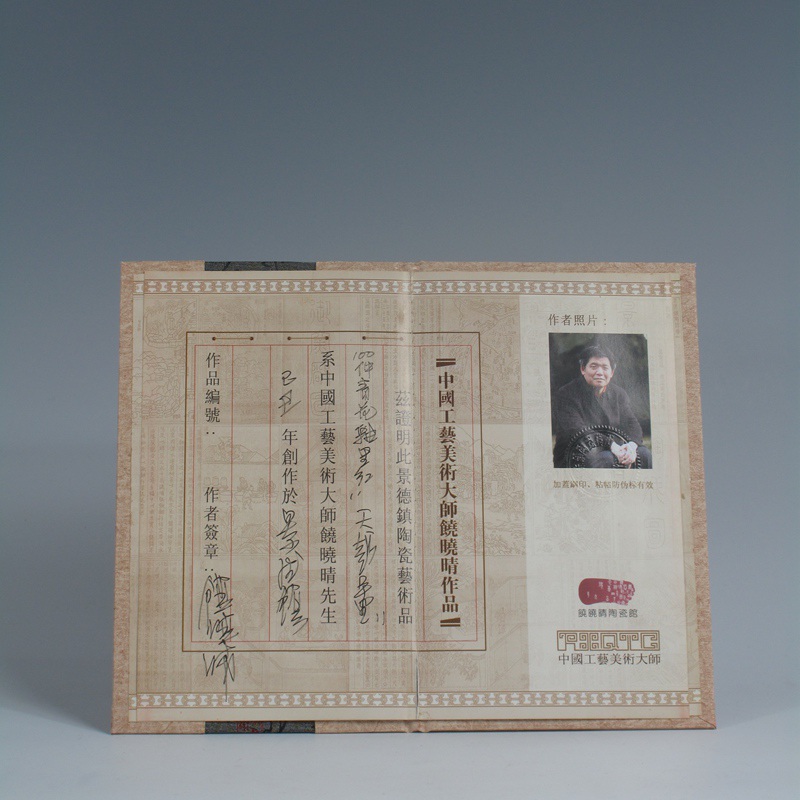 【中國工藝美術大師饒曉晴作品】
茲證明此景德鎮陶瓷藝術品
100件青花釉里红
系中國工藝美術大師饒曉晴先生
己丑 年創作於景德镇
作品編號： 作者簽章：
作者照片：
加蓋鋼印，粘帖防伪标有效
饒曉晴陶瓷館
中國工藝美術大師